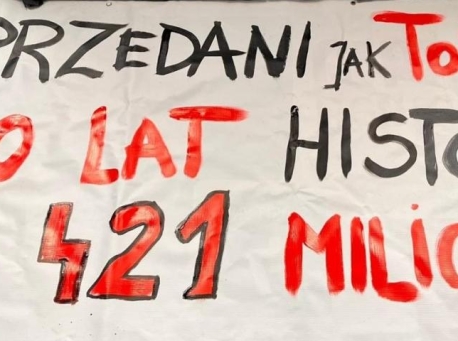 PRZEDANI JAK TO
0 LAT HISTO
421 MILIO